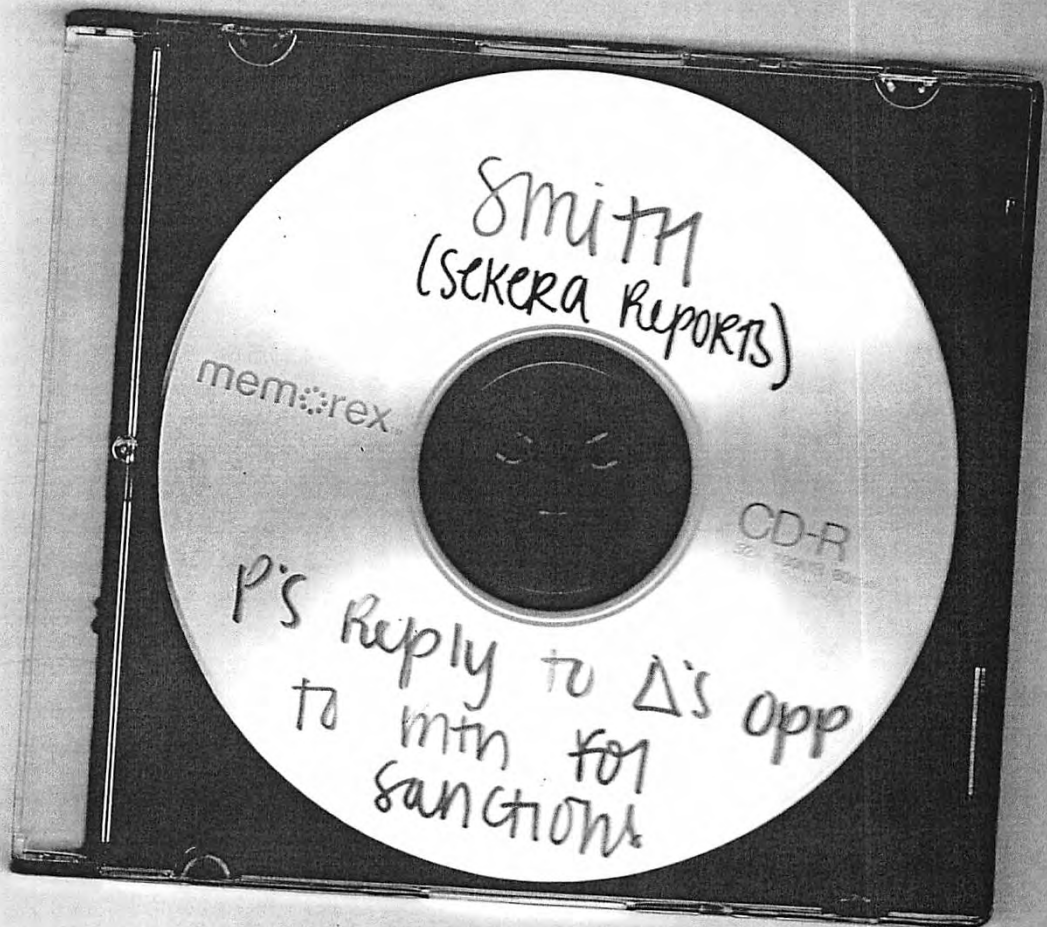 Smith
(Sekera Reports)
memorex
CD-R
P's Reply to Δ's opp
to mtn for
sanctions